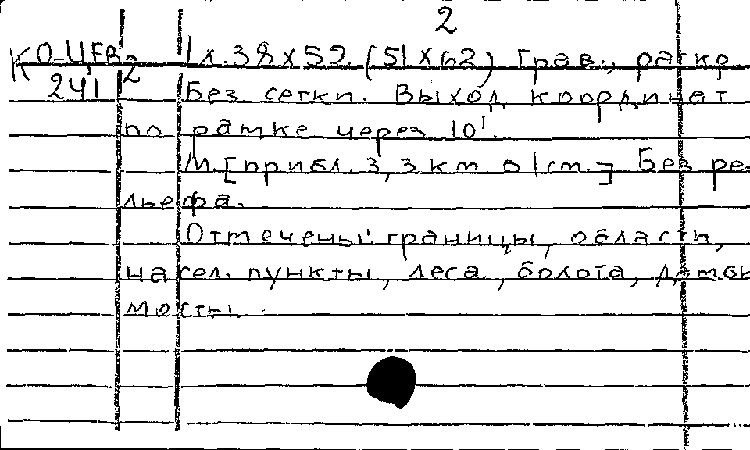 2
К О-ЦЕВ 2 1 л. 38 х 52 (51 х 62) Грав., раскр.
241 Без сетки. Выход координат
по рамке через 10'.
М [прибл. 3,3 км в 1 см.] Без ре-
льефа.
Отмечены: границы, области,
насел. пункты, леса, болота, дамбы
мосты.